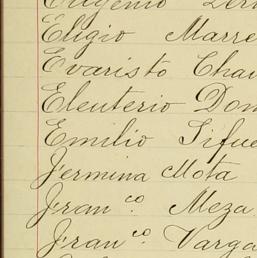 Eugenio
Eligio Marre
Evaristo Chav
Eleuterio Dom
Emilio Sifue
Jermina Mota
Fran co. Meza
Fran co. Varga